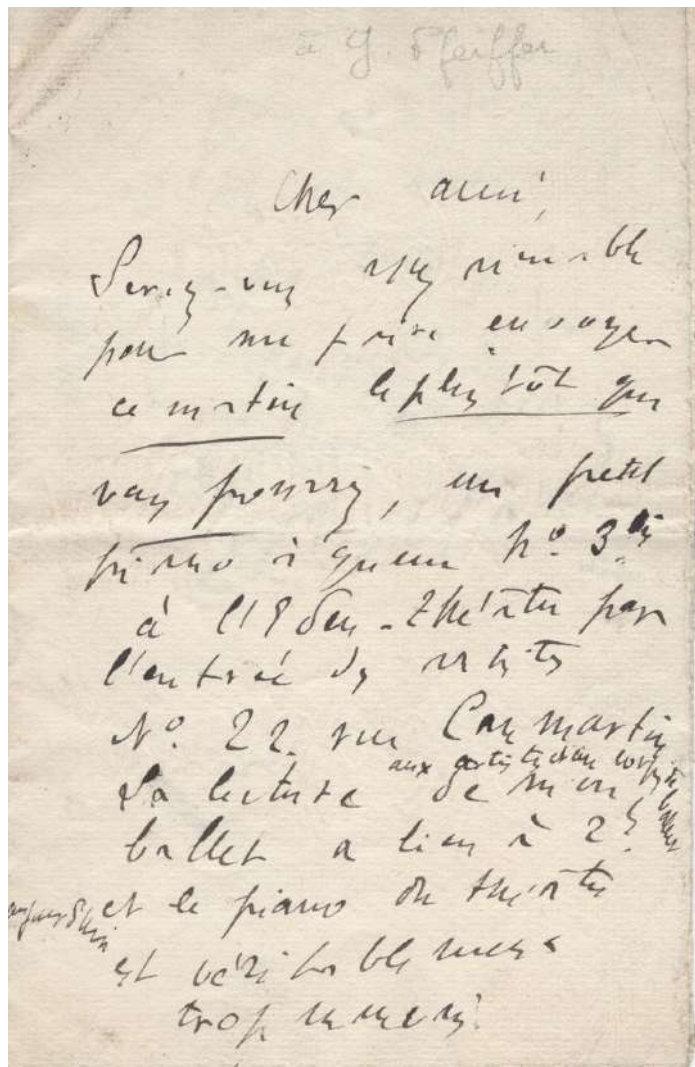 à G. Pfeiffer
Cher ami,
Serez-vous assez aimable
pour me faire envoyer
ce matin le plus tôt que
vous pourrez, un petit
piano à queue No. 3 bis
à l'Eden-Théâtre par
l'entrée des artistes
No. 22. rue Caumartin
aux artistes du corps de ballet
La lecture de mon
ballet a lieu à 2 h
aujourd'hui
et le piano du théâtre
est véritablement
trop mauvais.